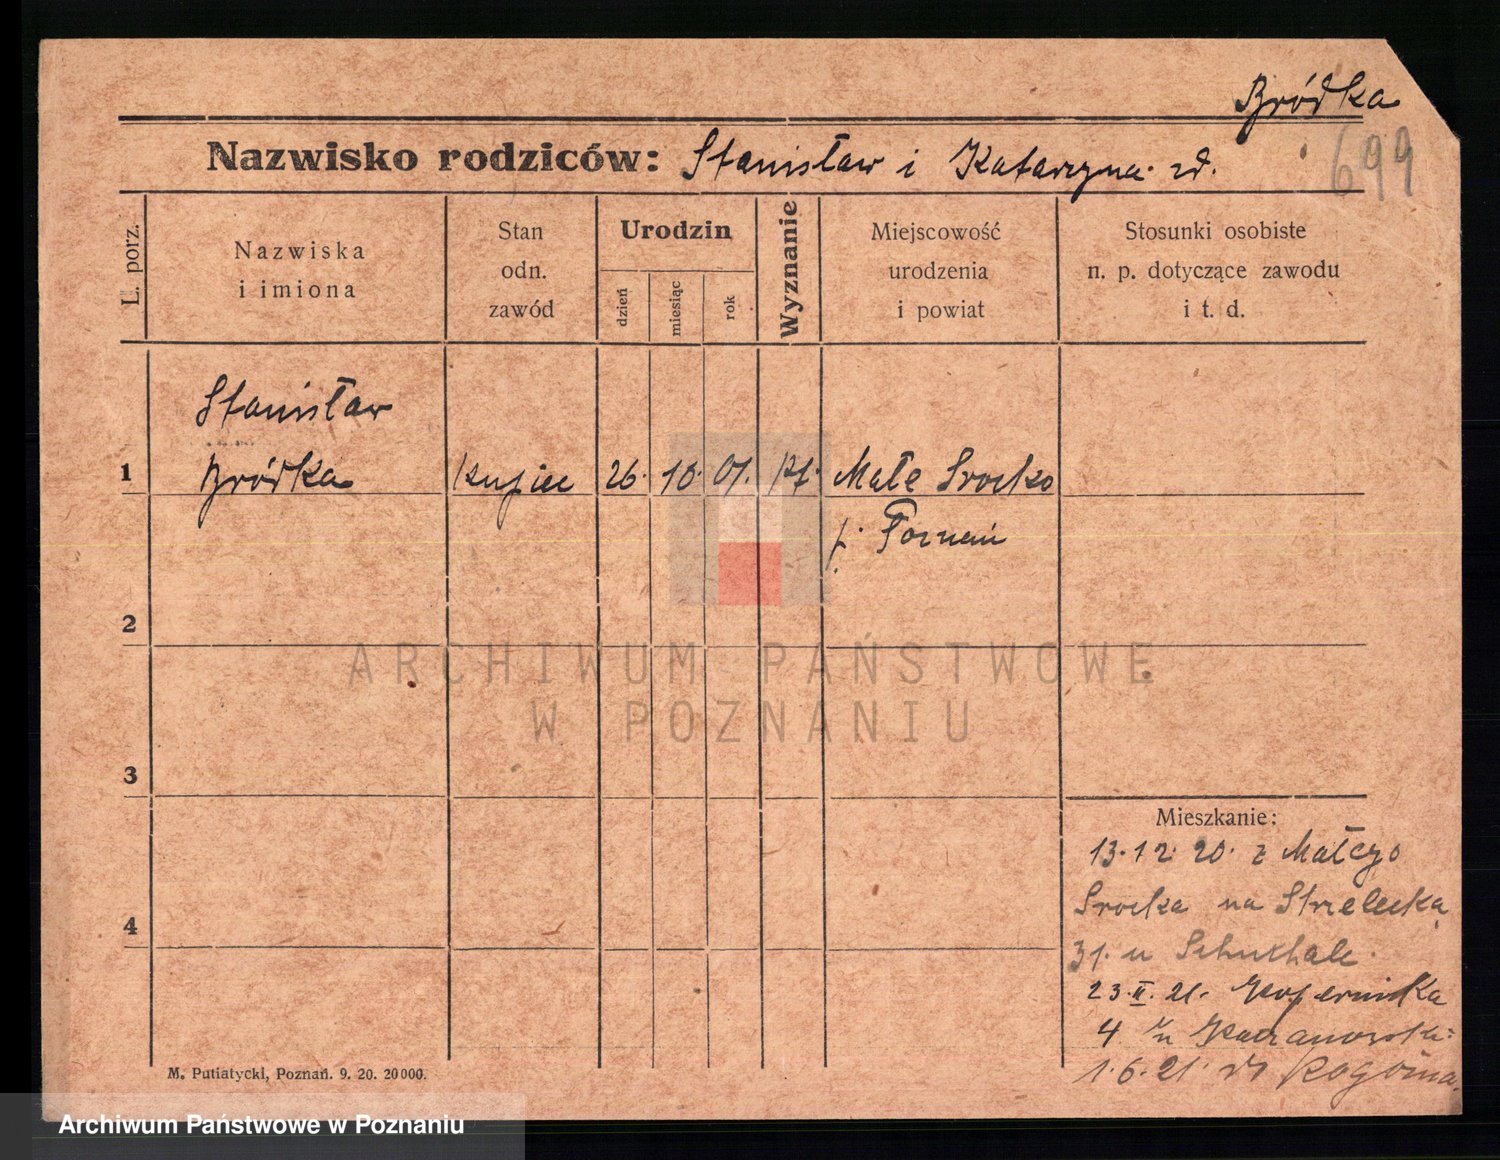 Bródka
699
Nazwisko rodziców: Stanisław i Katarzyna zd.
L. porz.
Nazwiska
i imiona
Stan
odn.
zawód
Urodzin
dzień
miesiąc
rok
Wyznanie
Miejscowość
urodzenia
i powiat
Stosunki osobiste
n. p. dotyczące zawodu
i t. d.
Stanisław
1 Bródka kupiec 26. 10. 01. kt. Małe Srocko
p. Poznań
2
3
4
Mieszkanie:
13.12.20. z Małego
Srocka na Strzelecką
31. u
23.II.21. Kopernika
4 u
1.6.21. do Rogoźna.
M. Putiatycki, Poznań. 9. 20. 20000.
ARCHIWUM PAŃSTWOWE
W POZNANIU
Archiwum Państwowe w Poznaniu